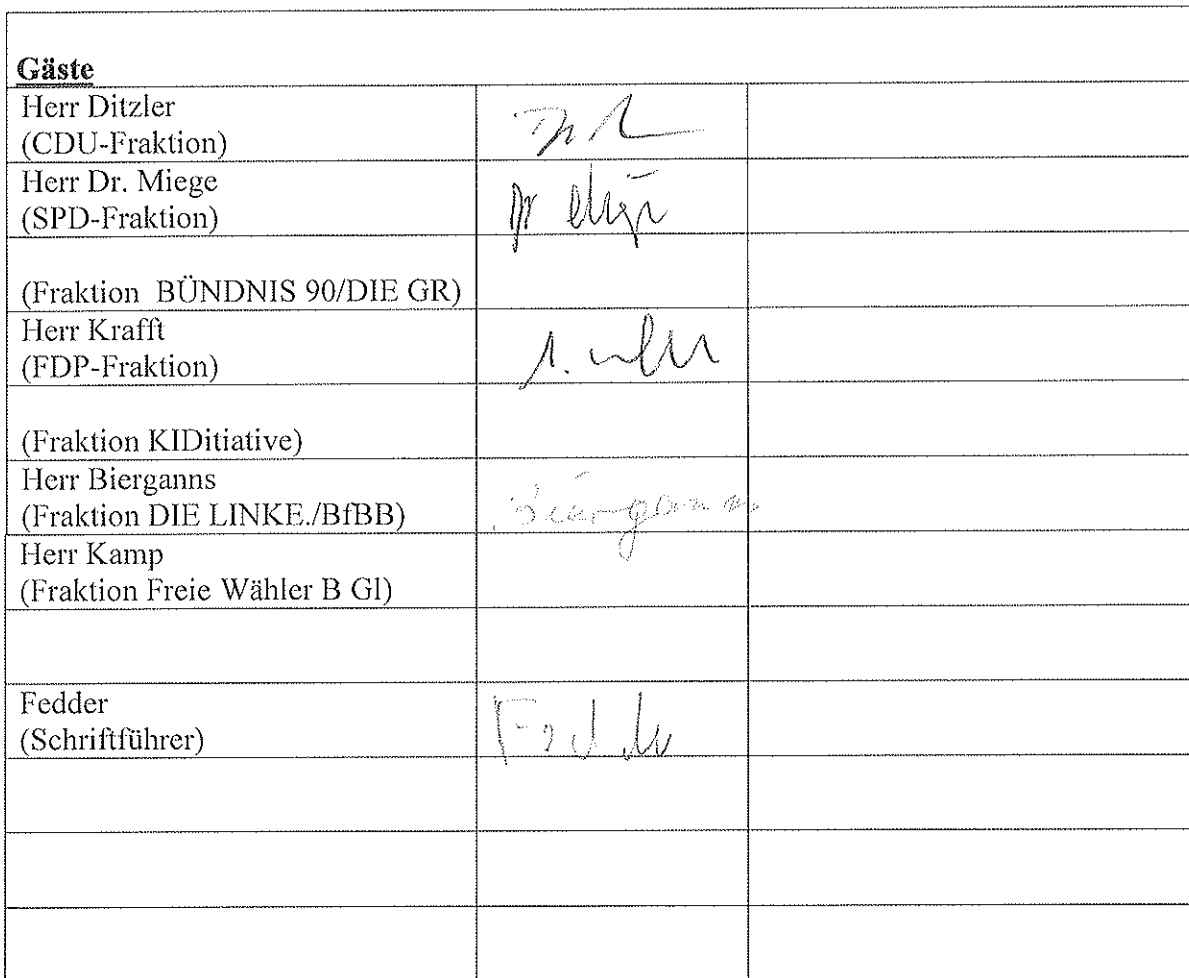 Gäste
Herr Ditzler
(CDU-Fraktion)
Herr Dr. Miege
(SPD-Fraktion)
(Fraktion BÜNDNIS 90/DIE GR)
Herr Krafft
(FDP-Fraktion)
(Fraktion KIDitiative)
Herr Bierganns
(Fraktion DIE LINKE./BfBB)
Bierganns
Herr Kamp
(Fraktion Freie Wähler B Gl)
Fedder
(Schriftführer)